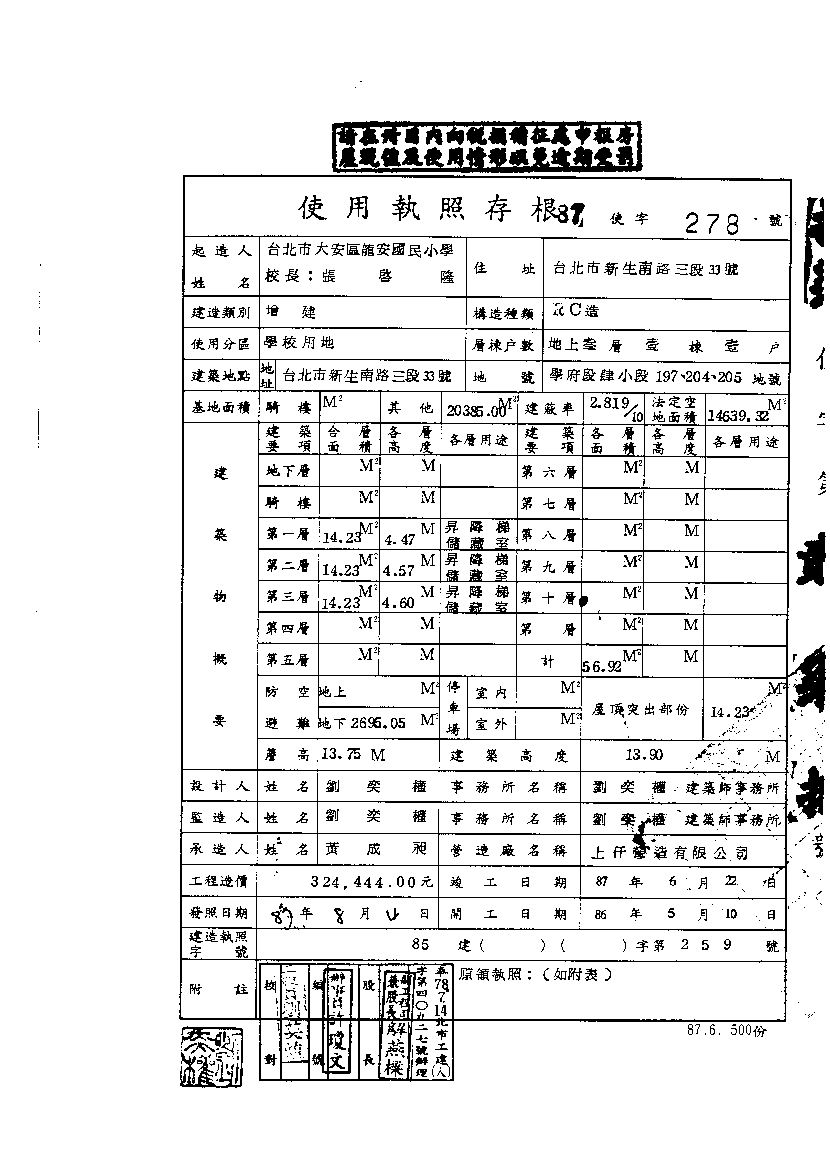 請在卅日內向稅捐稽征處申報房
屋現值及使用情形以免逾期受罰
使用執照存根 87 使字 278 號
起造人姓名 台北市大安區龍安國民小學校長：張啓隆 住址 台北市新生南路三段33號
建造類別 增建 構造種類 RC造
使用分區 學校用地 層棟户數 地上叁層壹棟壹户
建築地點 地址 台北市新生南路三段33號 地號 學府段肆小段197、204、205地號
基地面積 騎樓 M² 其他 20385.00M² 建蔽率 2.819/10 法定空地面積 14639.32M²
建築物概要
建築要項 各層面積 各層高度 各層用途 建築要項 各層面積 各層高度 各層用途
地下層 M² M 第六層 M² M
騎樓 M² M 第七層 M² M
第一層 14.23M² 4.47M 昇降梯儲藏室 第八層 M² M
第二層 14.23M² 4.57M 昇降梯儲藏室 第九層 M² M
第三層 14.23M² 4.60M 昇降梯儲藏室 第十層 M² M
第四層 M² M 第 層 M² M
第五層 M² M 計 56.92M² M
防空避難 地上 M² 地下2695.05M² 停車場 室內 M² 室外 M² 屋頂突出部份 14.23M²
簷高 13.75M 建築高度 13.90 M
設計人 姓名 劉奕權 事務所名稱 劉奕權建築師事務所
監造人 姓名 劉奕權 事務所名稱 劉奕權建築師事務所
承造人 姓名 黃成昶 營造廠名稱 上仟營造有限公司
工程造價 324,444.00元 竣工日期 87年6月22日
發照日期 87年8月4日 開工日期 86年5月10日
建造執照字號 85建( )( )字第259號
附註 原領執照：（如附表）
校對 編號 股長
78.7.14北市工建(人)
字第四〇九二七號辦理
87.6. 500份